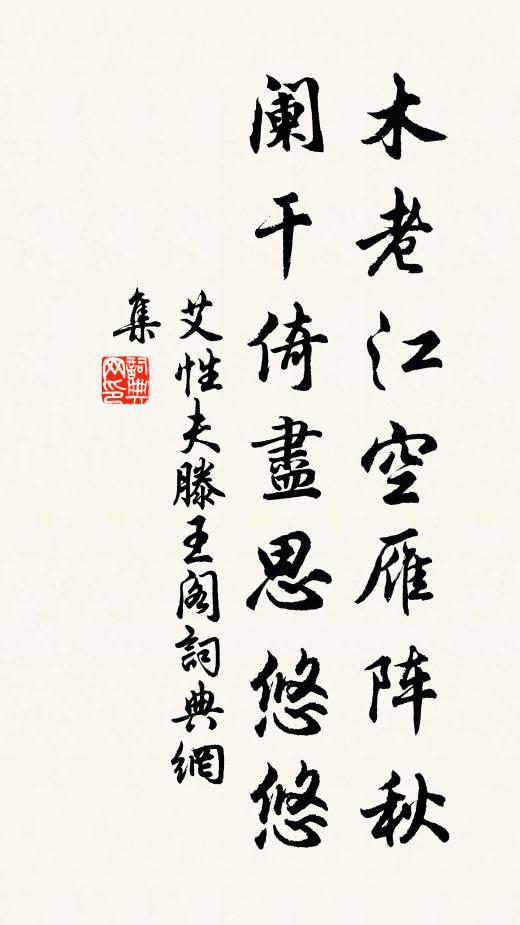 木老江空雁阵秋
阑干倚盡思悠悠
艾性夫滕王阁詞典網
集
詞典
网印